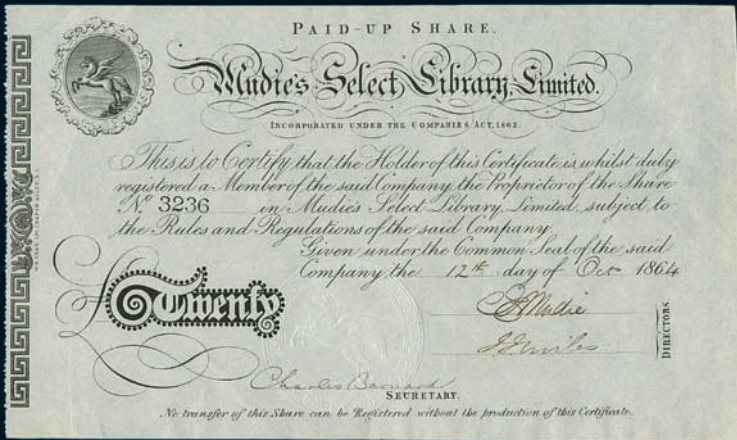 PAID-UP SHARE.
Mudie's Select Library, Limited.
INCORPORATED UNDER THE COMPANIES ACT, 1862.
This is to Certify that the Holder of this Certificate, is whilst duly
registered a Member of the said Company, the Proprietor of the Share
No 3236 in Mudie's Select Library, Limited, subject to
the Rules and Regulations of the said Company.
Given under the Common Seal of the said
Company the 12th day of Oct 1864
£Twenty
CEMudie
DIRECTORS
Charles Barnard
SECRETARY.
No transfer of this Share can be Registered without the production of this Certificate.